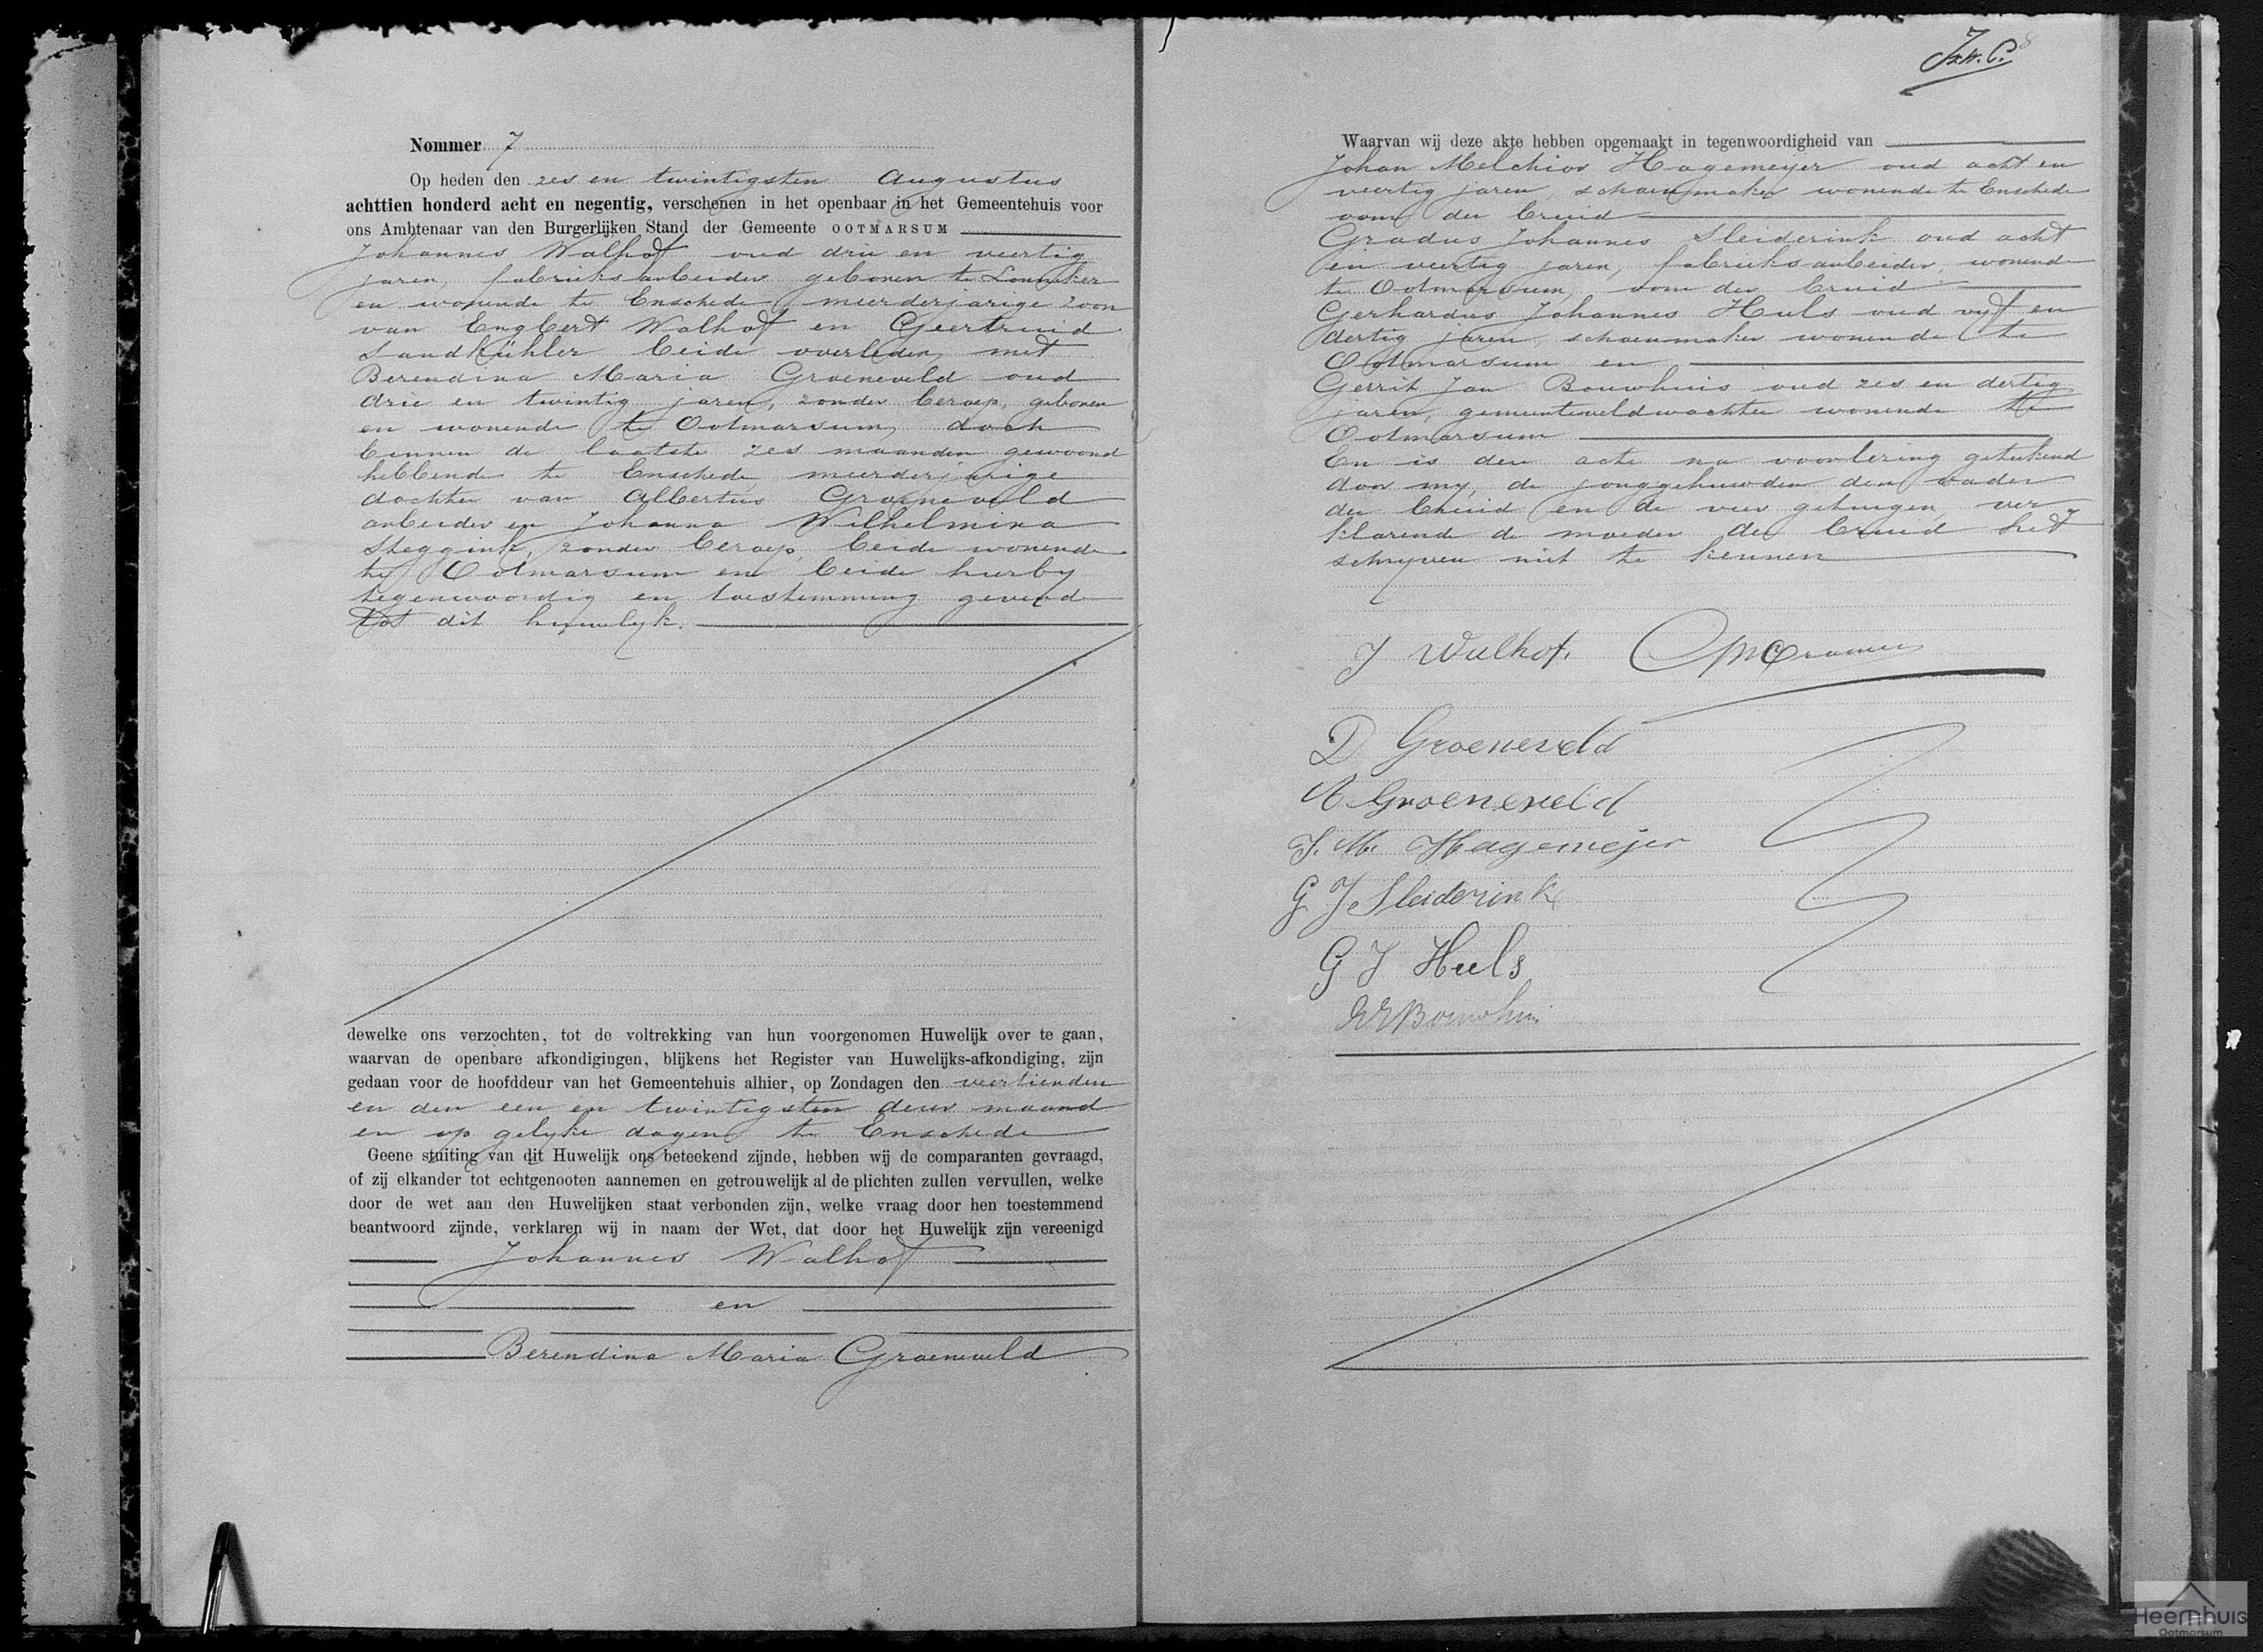 Nommer 7
Op heden den zes en twintigsten Augustus
achttien honderd acht en negentig, verschenen in het openbaar in het Gemeentehuis voor
ons Ambtenaar van den Burgerlijken Stand der Gemeente OOTMARSUM
Johannes Walhof oud drie en veertig
jaren, fabrieksarbeider geboren te Lonneker
en wonende te Enschede, meerderjarige zoon
van Engbert Walhof en Geertruid
Sandkühler beide overleden, met
Berendina Maria Groeneveld oud
drie en twintig jaren, zonder beroep, geboren
en wonende te Ootmarsum, doch
binnen de laatste zes maanden gewoond
hebbende te Enschede, meerderjarige
dochter van Albertus Groeneveld
arbeider en Johanna Wilhelmina
Steggink, zonder beroep beide wonende
te Ootmarsum en beide hierby
tegenwoordig en toestemming gevend
tot dit huwelyk.
dewelke ons verzochten, tot de voltrekking van hun voorgenomen Huwelijk over te gaan,
waarvan de openbare afkondigingen, blijkens het Register van Huwelijks-afkondiging, zijn
gedaan voor de hoofddeur van het Gemeentehuis alhier, op Zondagen den veertienden
en den een en twintigsten dezer maand
en op gelyke dagen te Enschede
Geene stuiting van dit Huwelijk ons beteekend zijnde, hebben wij de comparanten gevraagd,
of zij elkander tot echtgenooten aannemen en getrouwelijk al de plichten zullen vervullen, welke
door de wet aan den Huwelijken staat verbonden zijn, welke vraag door hen toestemmend
beantwoord zijnde, verklaren wij in naam der Wet, dat door het Huwelijk zijn vereenigd
Johannes Walhof
en
Berendina Maria Groeneveld
Waarvan wij deze akte hebben opgemaakt in tegenwoordigheid van
Johan Melchior Hagemeijer oud acht en
veertig jaren, schoenmaker wonende te Enschede
oom der bruid
Gradus Johannes Sleiderink oud acht
en veertig jaren, fabrieksarbeider, wonende
te Ootmarsum, oom der bruid
Gerhardus Johannes Huls oud vyf en
dertig jaren, schoenmaker wonende te
Ootmarsum en
Gerrit Jan Bouwhuis oud zes en dertig
jaren, gemeenteveldwachter wonende te
Ootmarsum
En is deze acte na voorlezing geteekend
door my, de jonggehuwden, den vader
der bruid en de vier getuigen, ver
klarende de moeder der bruid het
schryven niet te kennen
J Walhof. Cramer
D Groeneveld
A Groeneveld
J. M. Hagemejer
G J Sleiderink
G J Huls
Bouwhuis
Heemhuis
Ootmarsum